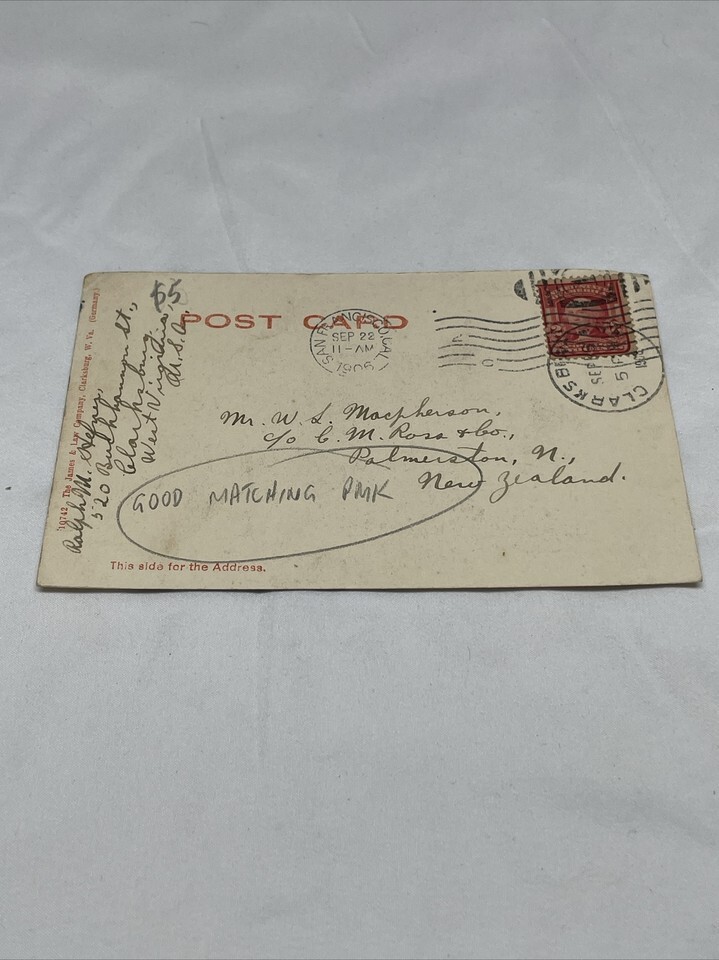 10742 The James & Law Company, Clarksburg, W. Va. (Germany)
Ralph M.
520 St.,
Clarksburg,
West Virginia,
U.S.A.
POST CARD
SAN FRANCISCO, CAL.
SEP 22
11-AM
1905
CLARKSB
SEP
5
Mr. W. S. Macpherson,
c/o C. M. Ross & Co.,
Palmerston, N.,
New Zealand.
GOOD MATCHING PMK
This side for the Address.